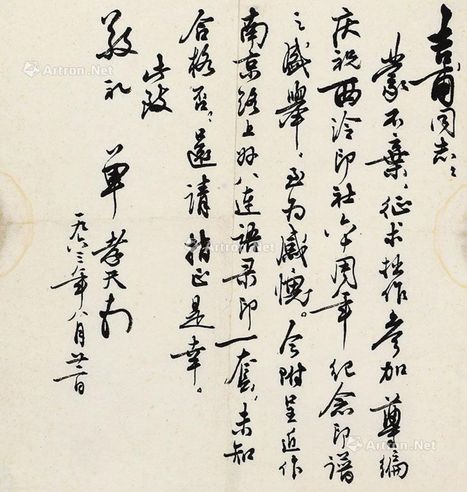 吉甫同志：
蒙不棄，征求拙作參加尊编
庆祝西泠印社六十周年纪念印譜
之盛舉，至为感愧。今附呈近作
南京路上好八连语录印一套，未知
合格否，還請指正是幸。
此致
敬礼
单孝天
一九六三年八月廿二日
Artron.Net
Artron.Net
Artron.Net
Artron.Net